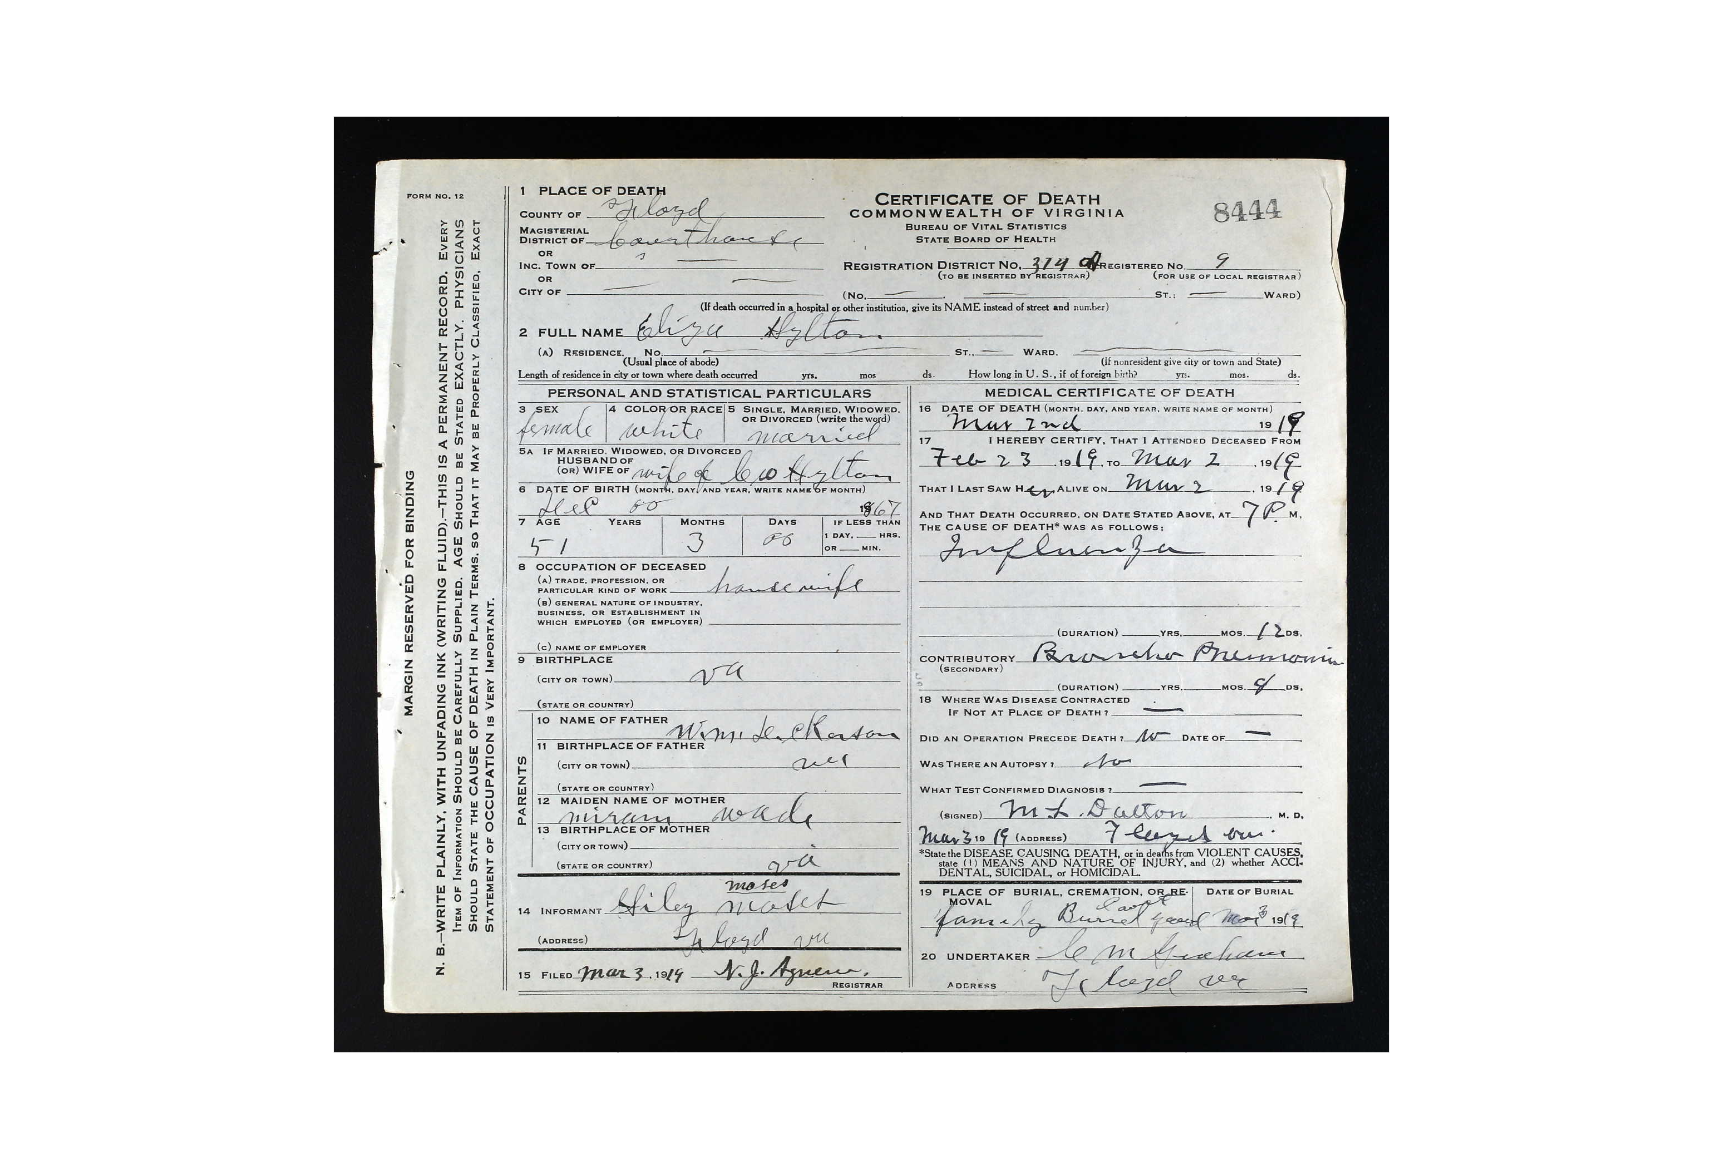 FORM NO. 12
MARGIN RESERVED FOR BINDING
N. B.—WRITE PLAINLY, WITH UNFADING INK (WRITING FLUID).—THIS IS A PERMANENT RECORD. EVERY
ITEM OF INFORMATION SHOULD BE CAREFULLY SUPPLIED. AGE SHOULD BE STATED EXACTLY. PHYSICIANS
SHOULD STATE THE CAUSE OF DEATH IN PLAIN TERMS, SO THAT IT MAY BE PROPERLY CLASSIFIED. EXACT
STATEMENT OF OCCUPATION IS VERY IMPORTANT.
1 PLACE OF DEATH
COUNTY OF Floyd
MAGISTERIAL
DISTRICT OF Courthouse
OR
INC. TOWN OF
OR
CITY OF
CERTIFICATE OF DEATH
COMMONWEALTH OF VIRGINIA
BUREAU OF VITAL STATISTICS
STATE BOARD OF HEALTH
8444
REGISTRATION DISTRICT NO. 314 A REGISTERED NO. 9
(TO BE INSERTED BY REGISTRAR) (FOR USE OF LOCAL REGISTRAR)
(No. ST.: WARD)
(If death occurred in a hospital or other institution, give its NAME instead of street and number)
2 FULL NAME Eliza Hylton
(A) RESIDENCE. No. ST., WARD.
(Usual place of abode) (If nonresident give city or town and State)
Length of residence in city or town where death occurred yrs. mos ds. How long in U. S., if of foreign birth? yrs. mos. ds.
PERSONAL AND STATISTICAL PARTICULARS
3 SEX 4 COLOR OR RACE 5 SINGLE, MARRIED, WIDOWED,
OR DIVORCED (write the word)
female white married
5A IF MARRIED, WIDOWED, OR DIVORCED
HUSBAND OF
(OR) WIFE OF wife of C W Hylton
6 DATE OF BIRTH (MONTH, DAY, AND YEAR, WRITE NAME OF MONTH)
Dec 00 1867
7 AGE YEARS MONTHS DAYS IF LESS THAN
1 DAY, HRS.
OR MIN.
51 3 00
8 OCCUPATION OF DECEASED
(A) TRADE, PROFESSION, OR
PARTICULAR KIND OF WORK housewife
(B) GENERAL NATURE OF INDUSTRY,
BUSINESS, OR ESTABLISHMENT IN
WHICH EMPLOYED (OR EMPLOYER)
(C) NAME OF EMPLOYER
9 BIRTHPLACE
(CITY OR TOWN) va
(STATE OR COUNTRY)
PARENTS
10 NAME OF FATHER Wm. Dickerson
11 BIRTHPLACE OF FATHER
(CITY OR TOWN) va
(STATE OR COUNTRY)
12 MAIDEN NAME OF MOTHER
miram wade
13 BIRTHPLACE OF MOTHER
(CITY OR TOWN)
(STATE OR COUNTRY) va
moses
14 INFORMANT
(ADDRESS) Floyd va
15 FILED Mar 3, 1919 N. J. Agnew.
REGISTRAR
MEDICAL CERTIFICATE OF DEATH
16 DATE OF DEATH (MONTH, DAY, AND YEAR, WRITE NAME OF MONTH)
Mar 2nd 1919
17 I HEREBY CERTIFY, THAT I ATTENDED DECEASED FROM
Feb 23, 1919, TO Mar 2, 1919
THAT I LAST SAW HER ALIVE ON Mar 2, 1919
AND THAT DEATH OCCURRED, ON DATE STATED ABOVE, AT 7 P. M.
THE CAUSE OF DEATH* WAS AS FOLLOWS:
Influenza
(DURATION) YRS. MOS. 12 DS.
CONTRIBUTORY Broncho Pneumonia
(SECONDARY)
(DURATION) YRS. MOS. DS.
18 WHERE WAS DISEASE CONTRACTED
IF NOT AT PLACE OF DEATH?
DID AN OPERATION PRECEDE DEATH? No DATE OF
WAS THERE AN AUTOPSY? No
WHAT TEST CONFIRMED DIAGNOSIS?
(SIGNED) M. L. Dalton, M. D.
Mar 3 1919 (ADDRESS) Floyd
*State the DISEASE CAUSING DEATH, or in deaths from VIOLENT CAUSES,
state (1) MEANS AND NATURE OF INJURY, and (2) whether ACCI-
DENTAL, SUICIDAL, or HOMICIDAL.
19 PLACE OF BURIAL, CREMATION, OR RE-
MOVAL
DATE OF BURIAL
family yard Mar 3 1919
20 UNDERTAKER C M Graham
ADDRESS Floyd va